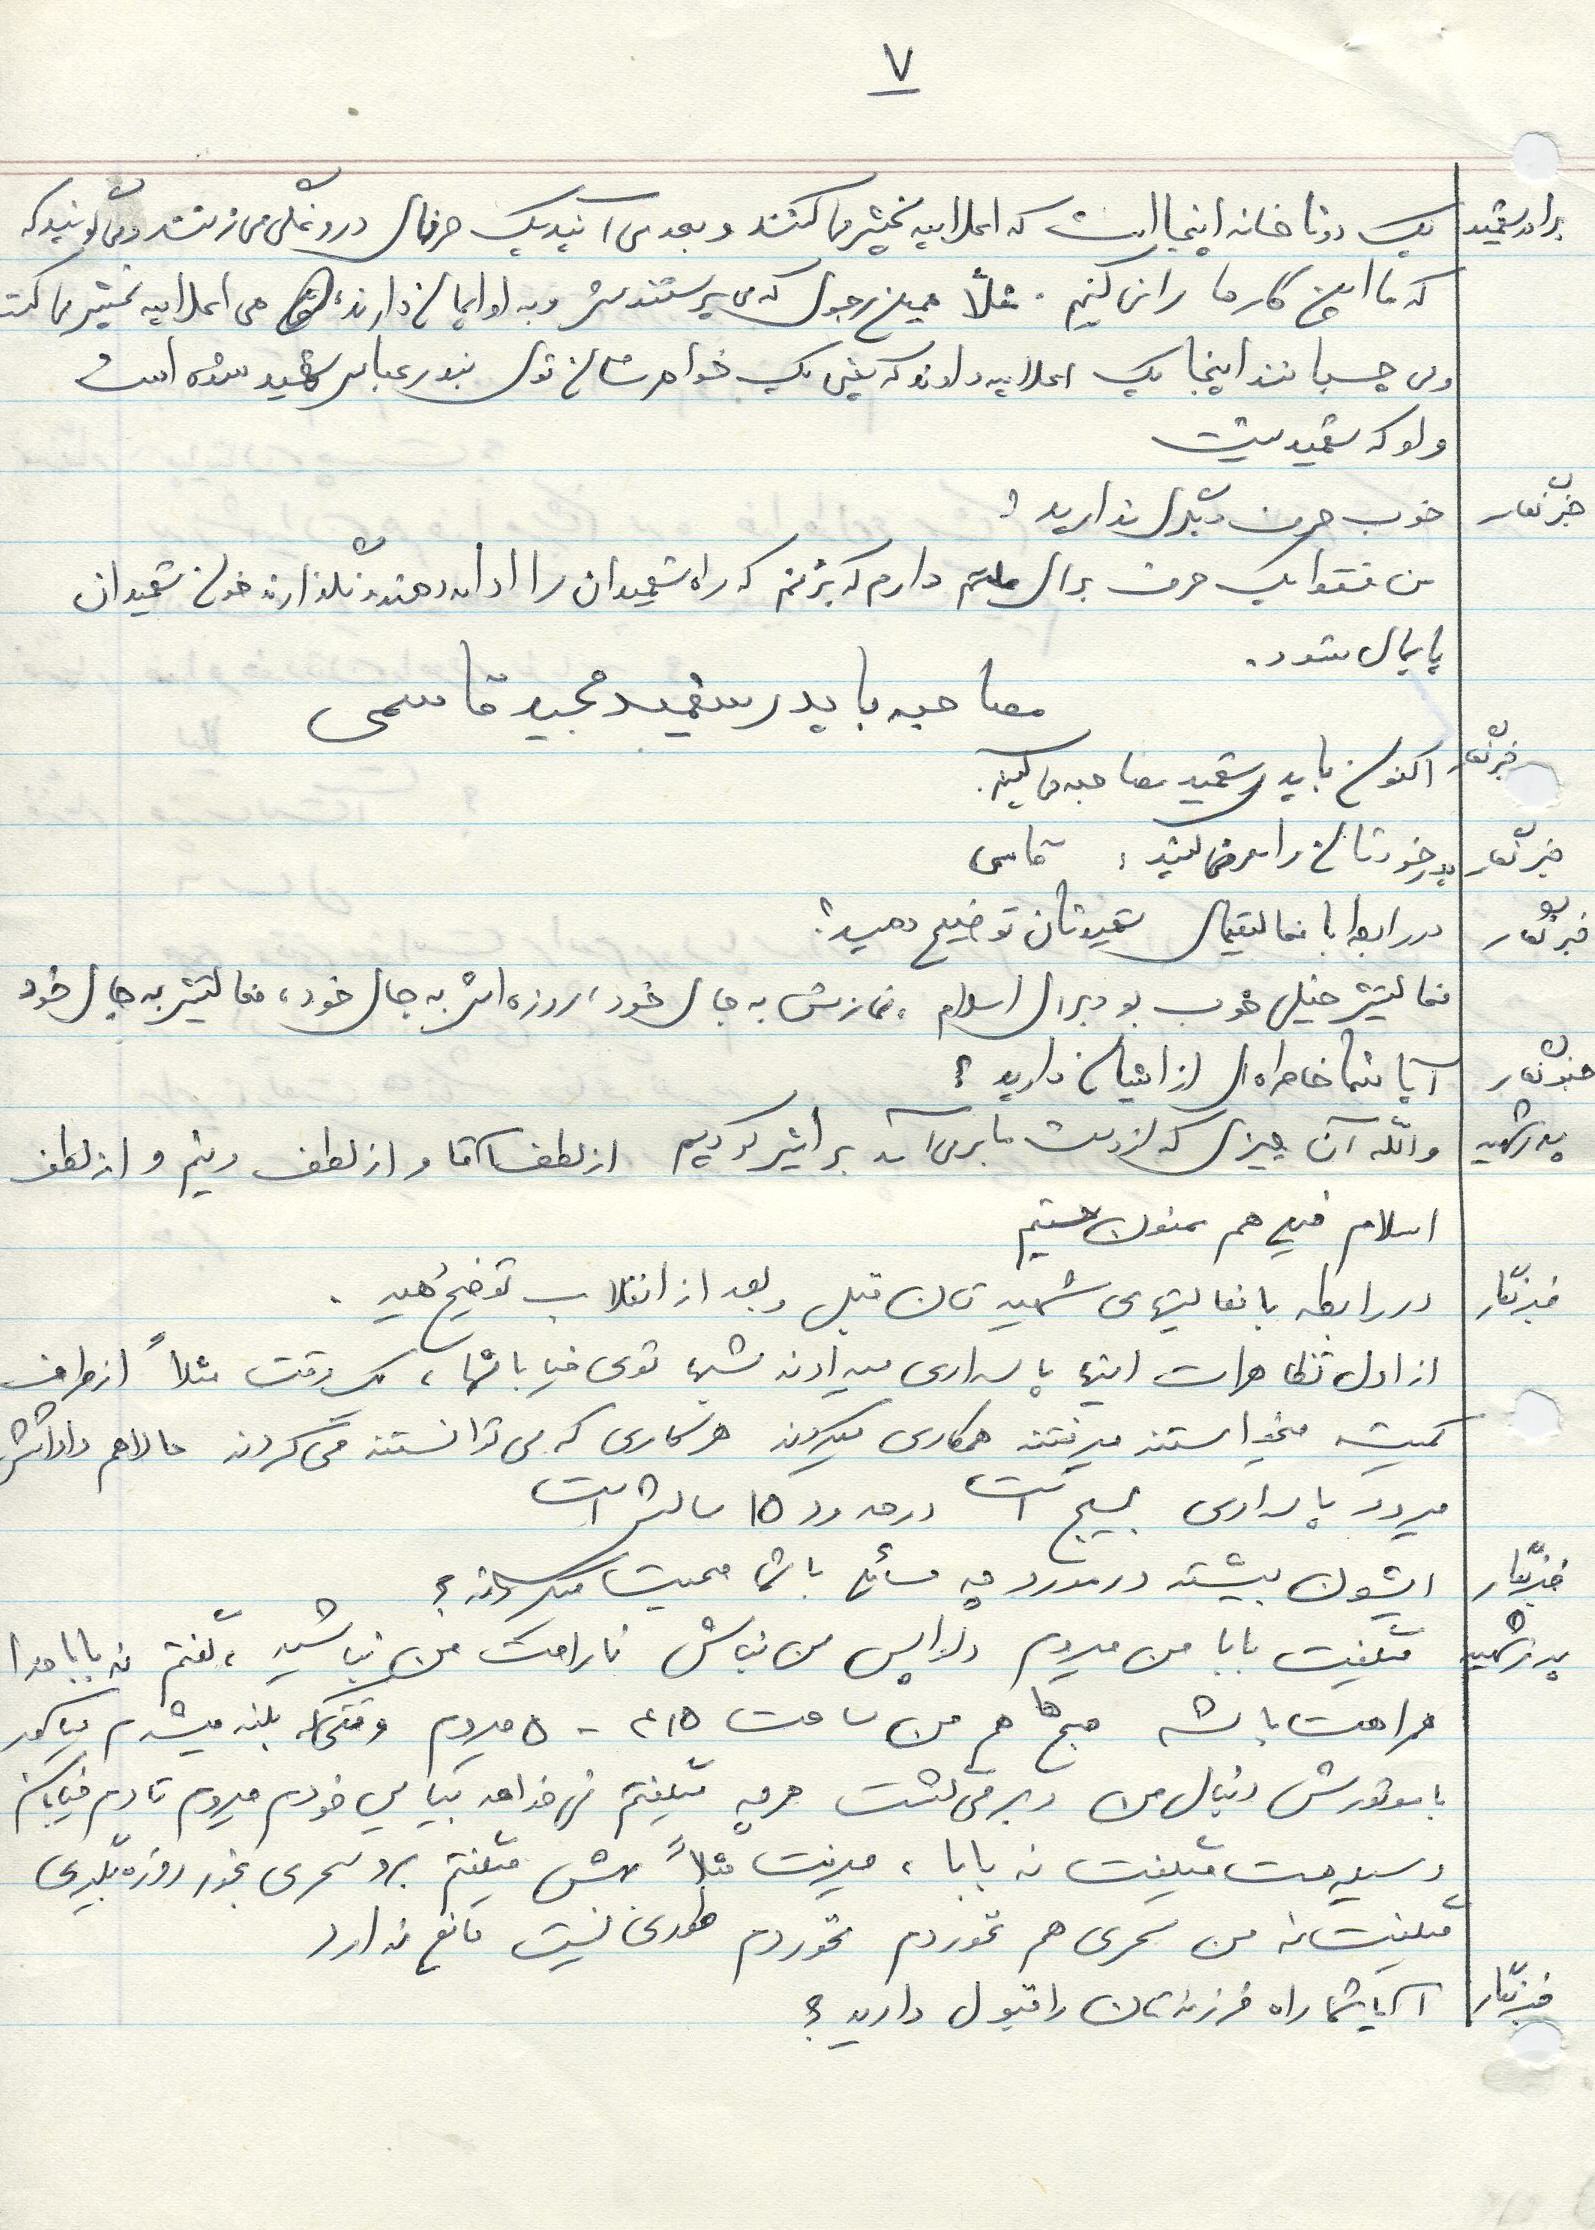 ۷
برادر شهید یک دوتا خانه اینجا است که اعلامیه پخش می‌کنند و بعد می‌آیند یک حرفهای دروغکی می‌زنند و می‌گویند که
که ما این کارها را نمی‌کنیم. مثلاً همین رجوی که می‌پرستندش و به او ایمان دارند، هی اعلامیه پخش می‌کنند
ومی چسبانند اینجا یک اعلامیه دادند که یعنی یک خواهرشان توی بندرعباس شهید شده است
ولو که شهید نیست
خبرنگار خوب حرف دیگری ندارید؟
من فقط یک حرف برای ملتم دارم که بزنم که راه شهیدان را ادامه دهند و نگذارند خون شهیدان
پایمال شود.
مصاحبه با پدر شهید مجید قاسمی
خبرنگار اکنون با پدر شهید مصاحبه می‌کنیم.
خبرنگار پدر خودتان را معرفی کنید: قاسمی
خبرنگار در رابطه با فعالیتهای شهیدتان توضیح دهید؟
فعالیتش خیلی خوب بود برای اسلام، نمازش به جای خود، روزه‌اش به جای خود، فعالیتش به جای خود
خبرنگار آیا شما خاطره‌ای از ایشان دارید؟
پدر شهید والله آن چیزی که از دست ما برمی‌آمد برایش کردیم از لطف آقا و از لطف دینم و از لطف
اسلام خیلی هم ممنون هستیم
خبرنگار در رابطه با فعالیتهای شهیدتان قبل و بعد از انقلاب توضیح دهید.
از اول تظاهرات اینها پاسداری میدادند شبها توی خیابانها، یک وقت مثلاً از طرف
کمیته میخواستند میرفتند همکاری میکردند هر کاری که می توانستند می کردند حالا هم داداشش
میرود پاسداری بسیج است در حدود ۱۵ سالش است
خبرنگار ایشون بیشتر در مورد چه مسائلی با شما صحبت میکردند؟
پدر شهید میگفت بابا من میروم دلواپس من نباش ناراحت من نباشید، گفتم نه بابا خدا
همراهت باشه صبح‌ها هم من ساعت ۴،۱۵ - ۵ میروم وقتیکه بلند میشدم میآمد
با موتورش دنبال من و برمی گشت هرچه میگفتم نمیخواهد بیایی خودم میروم تا دم خیابان
وسیله هست میگفت نه بابا، میرفت مثلاً بهش میگفتم برو سحری بخور روزه بگیری
میگفت نه من سحری هم نخوردم نخوردم طوری نیست مانعی ندارد
خبرنگار آیا شما راه فرزندتان را قبول دارید؟